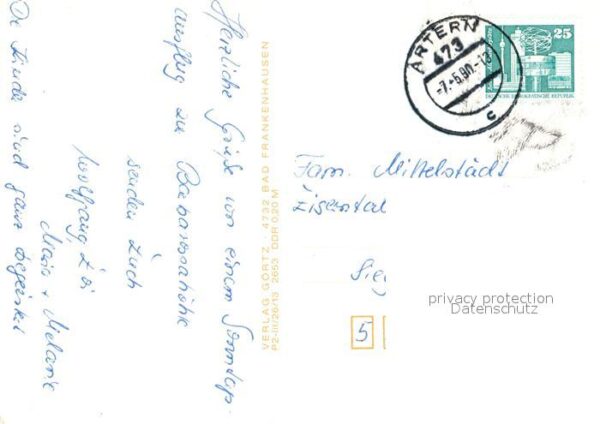 Herzliche Grüße von einem Sonntags-
ausflug zur Barbarossahöhle
senden Euch
Wolfgang, Evi
Mario + Melanie
Die Kinder sind ganz begeistert
VERLAG GÖRTZ · 4732 BAD FRANKENHAUSEN
P2-III/26-13 2653 DDR 0,20 M
ARTERN
473
-7.-6.90.-13
c
25
DEUTSCHE DEMOKRATISCHE REPUBLIK
Fam. Mittelstädt
Eisental
Sieg
5
privacy protection
Datenschutz